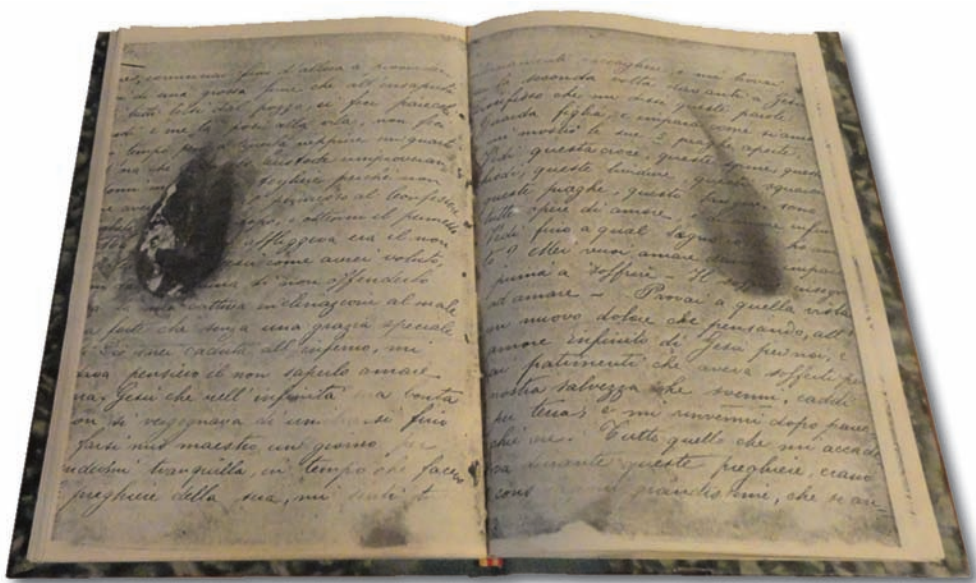 cominciai fino d'allora a
di una grossa fune che all'insaputa
tutti tolsi dal pozzo, ci feci parecchi
nodi e me la posi alla vita, non fu
tempo neppure un quarto
ora che custode
togliere perchè non
permesso al Confessore
e ottenni il permesso
affliggeva era il non
come averei voluto,
di non offenderlo
cattiva inclinazione al male
forte che senza una grazia speciale
Dio sarei caduta all'inferno, mi
pensiero il non saperlo amare
ma Gesù che nell'infinita sua bontà
non si vergognava di umiliarsi fino
farsi mio maestro un giorno per
rendermi tranquilla, in tempo che facevo
preghiere della sera, mi sentii
raccogliere e mi trovai
la seconda volta davanti a Gesù
Crocifisso che mi disse queste parole:
Guarda figlia, e impara come si ama
mi mostrò le sue 5 piaghe aperte,
Vedi questa croce, queste spine, questi
chiodi, queste lividure, queste
queste piaghe, questo sono
tutte opere di amore, e
Vedi fino a qual segno io ti ho
to? Mi vuoi amare davvero? impara
prima a soffrire - Il insegna
ad amare - Provai a quella vista
un nuovo dolore che pensando, all'
amore infinito di Gesù per noi, e
ai patimenti che aveva sofferti per
nostra salvezza che svenni, caddi
per terra, e mi rinvenni dopo parec
chie ore. Tutto quello che mi accade
va durante queste preghiere, erano
cons grandissime, che